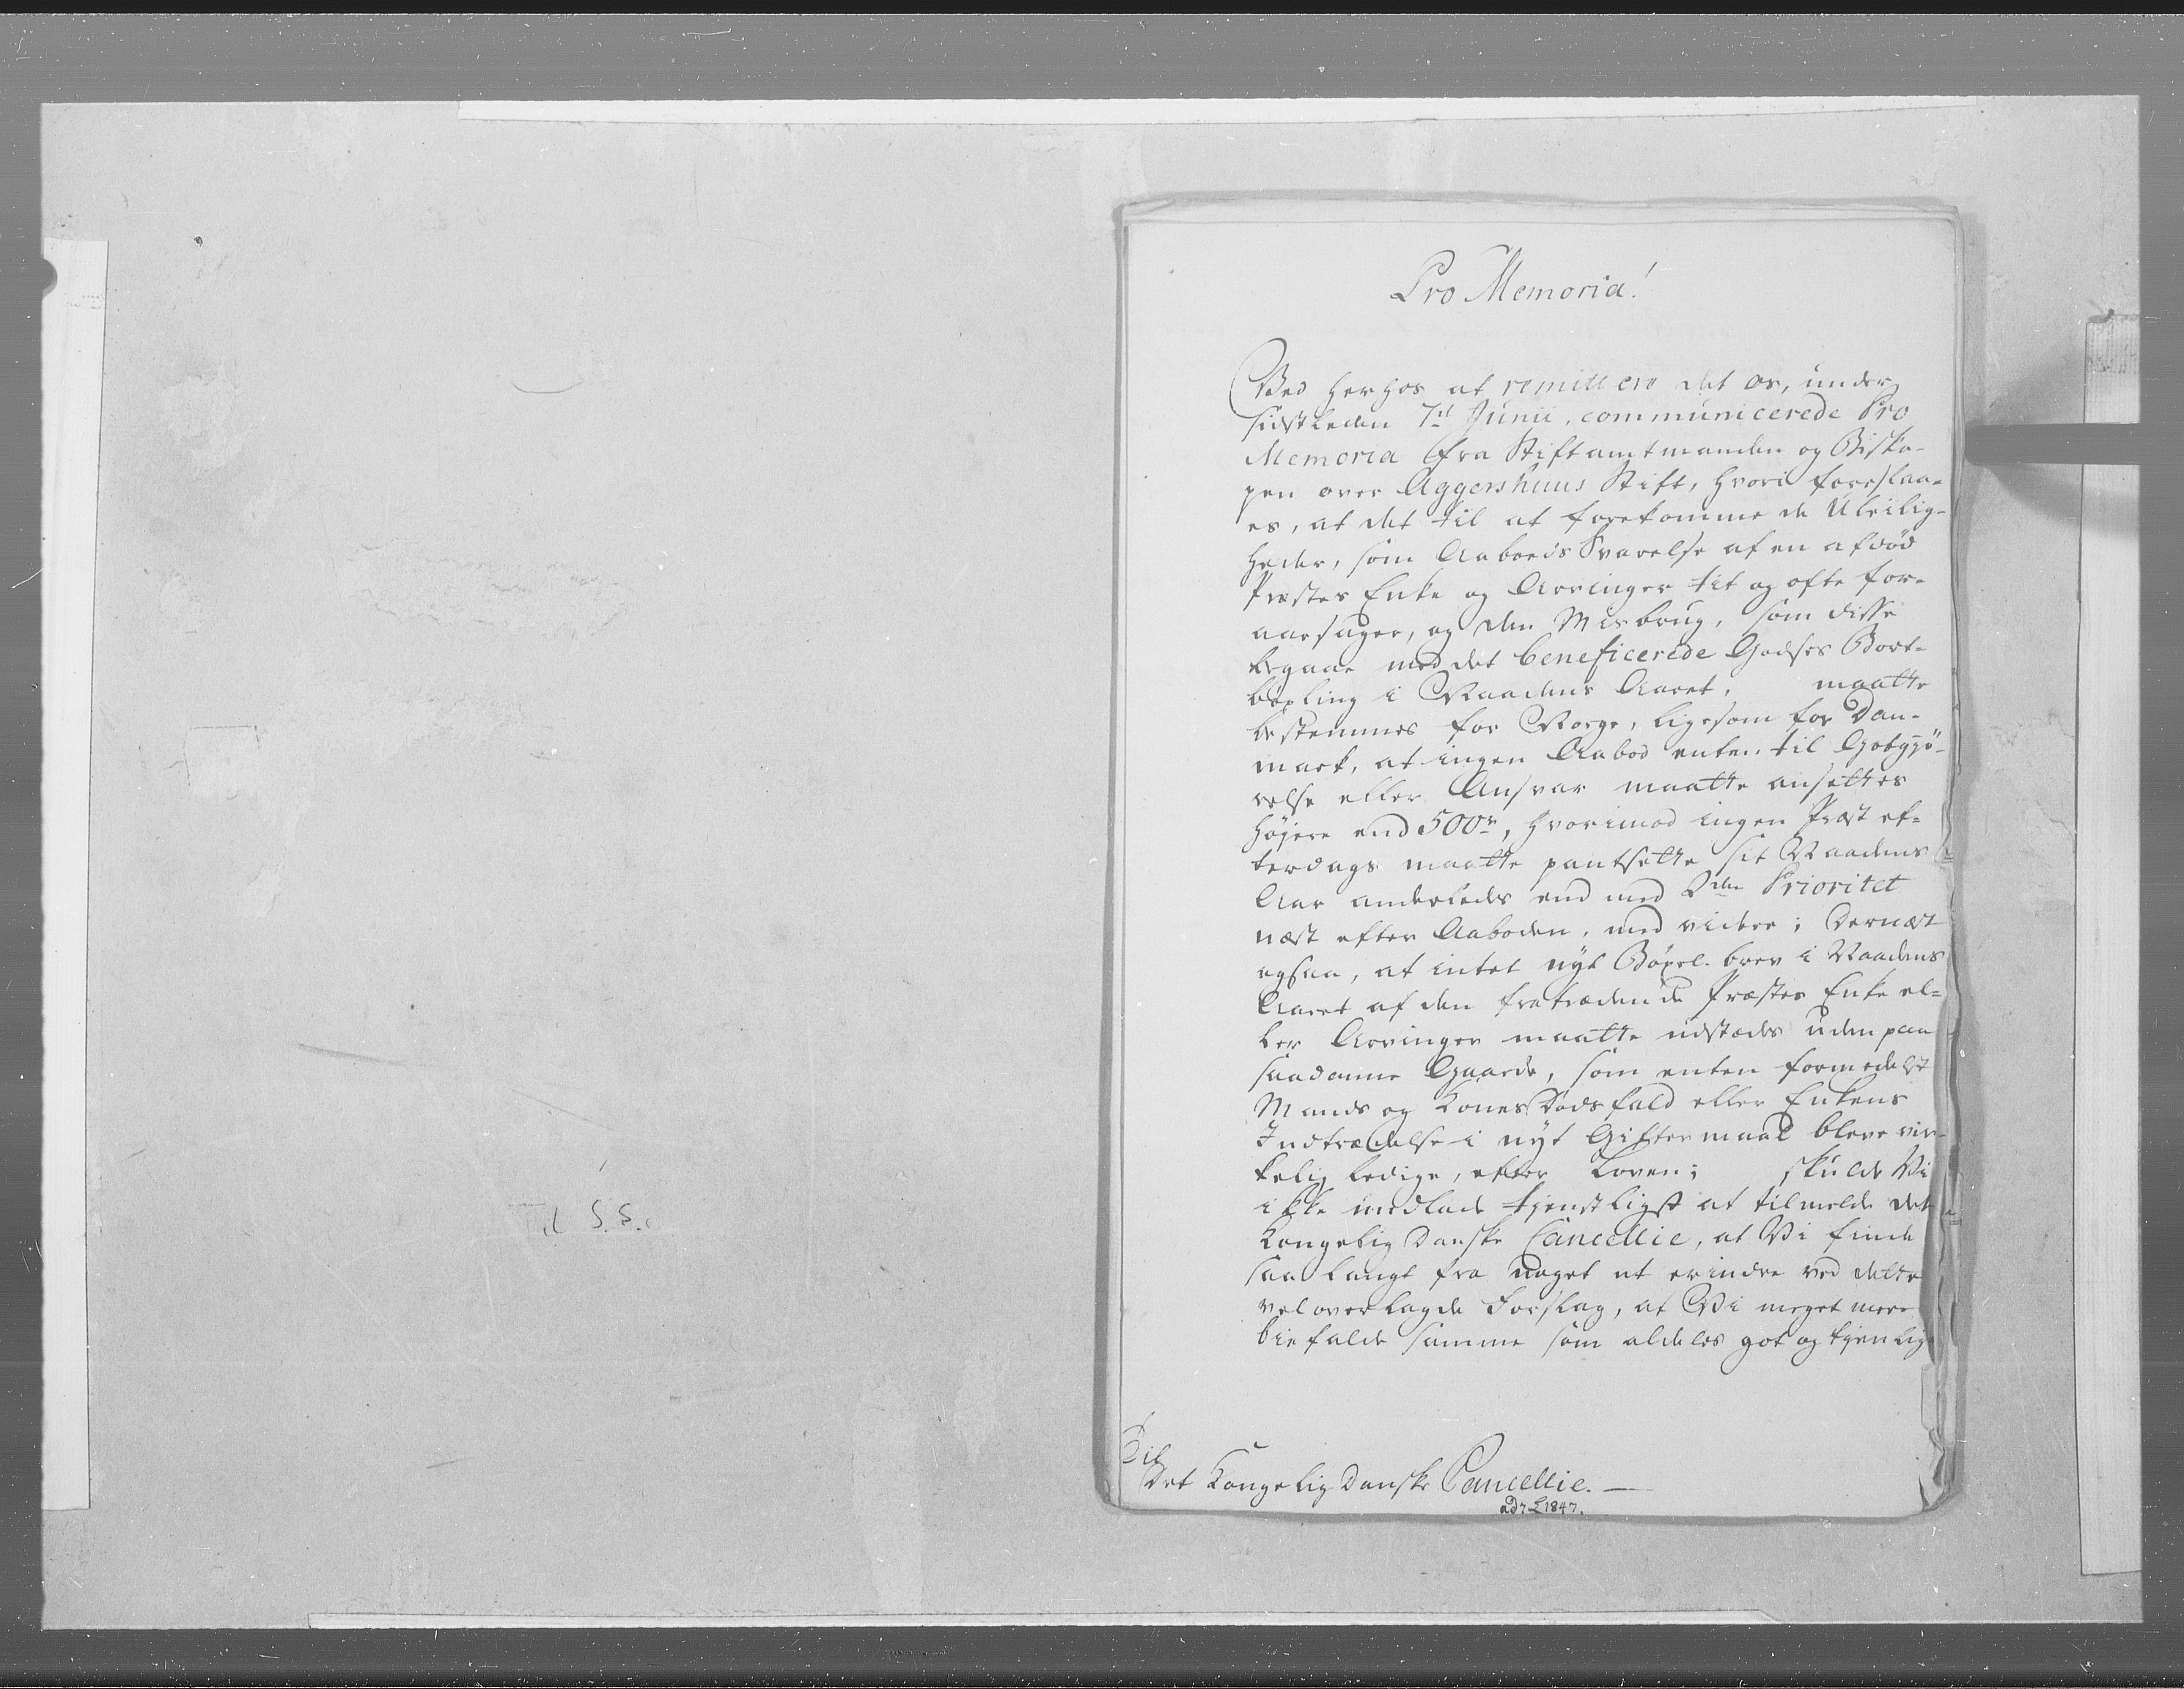 Til S. S.
Pro Memoria!
Ved herhos at remittere det os, under
sidstleden 7de Junii, communicerede Pro
Memoria fra Stiftamtmanden og Bisko-
pen over Aggershuus Stift, hvori foreslaa-
es, at det til at forekomme de Uleilig-
heder, som Aaboeds Svarelse af en afdød
Præstes Enke og Arvinger tit og ofte for-
aarsager, og den Misbrug, som disse
begaae med det beneficerede Godses Bort-
böxling i Naadens Aaret, maatte
bestemmes for Norge, ligesom for Dan-
mark, at ingen Aabod enten til Godtgjö-
relse eller Ansvar maatte ansettes
höjere end 500rd, hvorimod ingen Præst ef-
terdags maatte pantsette sit Naadens
Aar anderledes end med 2den Prioritet
næst efter Aaboden, med videre; Dernæst
ogsaa, at intet nyt Böxel-brev i Naadens
Aaret af den fratrædende Præstes Enke el-
ler Arvinger maatte udstædes uden paa
saadanne Gaarde, som enten formedelst
Mands og Kones Dödsfald eller Enkens
Indtrædelse i nyt Giftermaal bleve vir-
kelig ledige, efter Loven; skulde Vi
ikke undlade tjenstligst at tilmelde det
Kongelig Danske Cancellie, at Vi finde
saa langt fra noget at erindre ved dette
vel overlagde Forslag, at Vi meget mere
biefalde samme som aldeles got og tjenlig
Til
Det Kongelig Danske Cancellie. —
ad 7 L 1847.